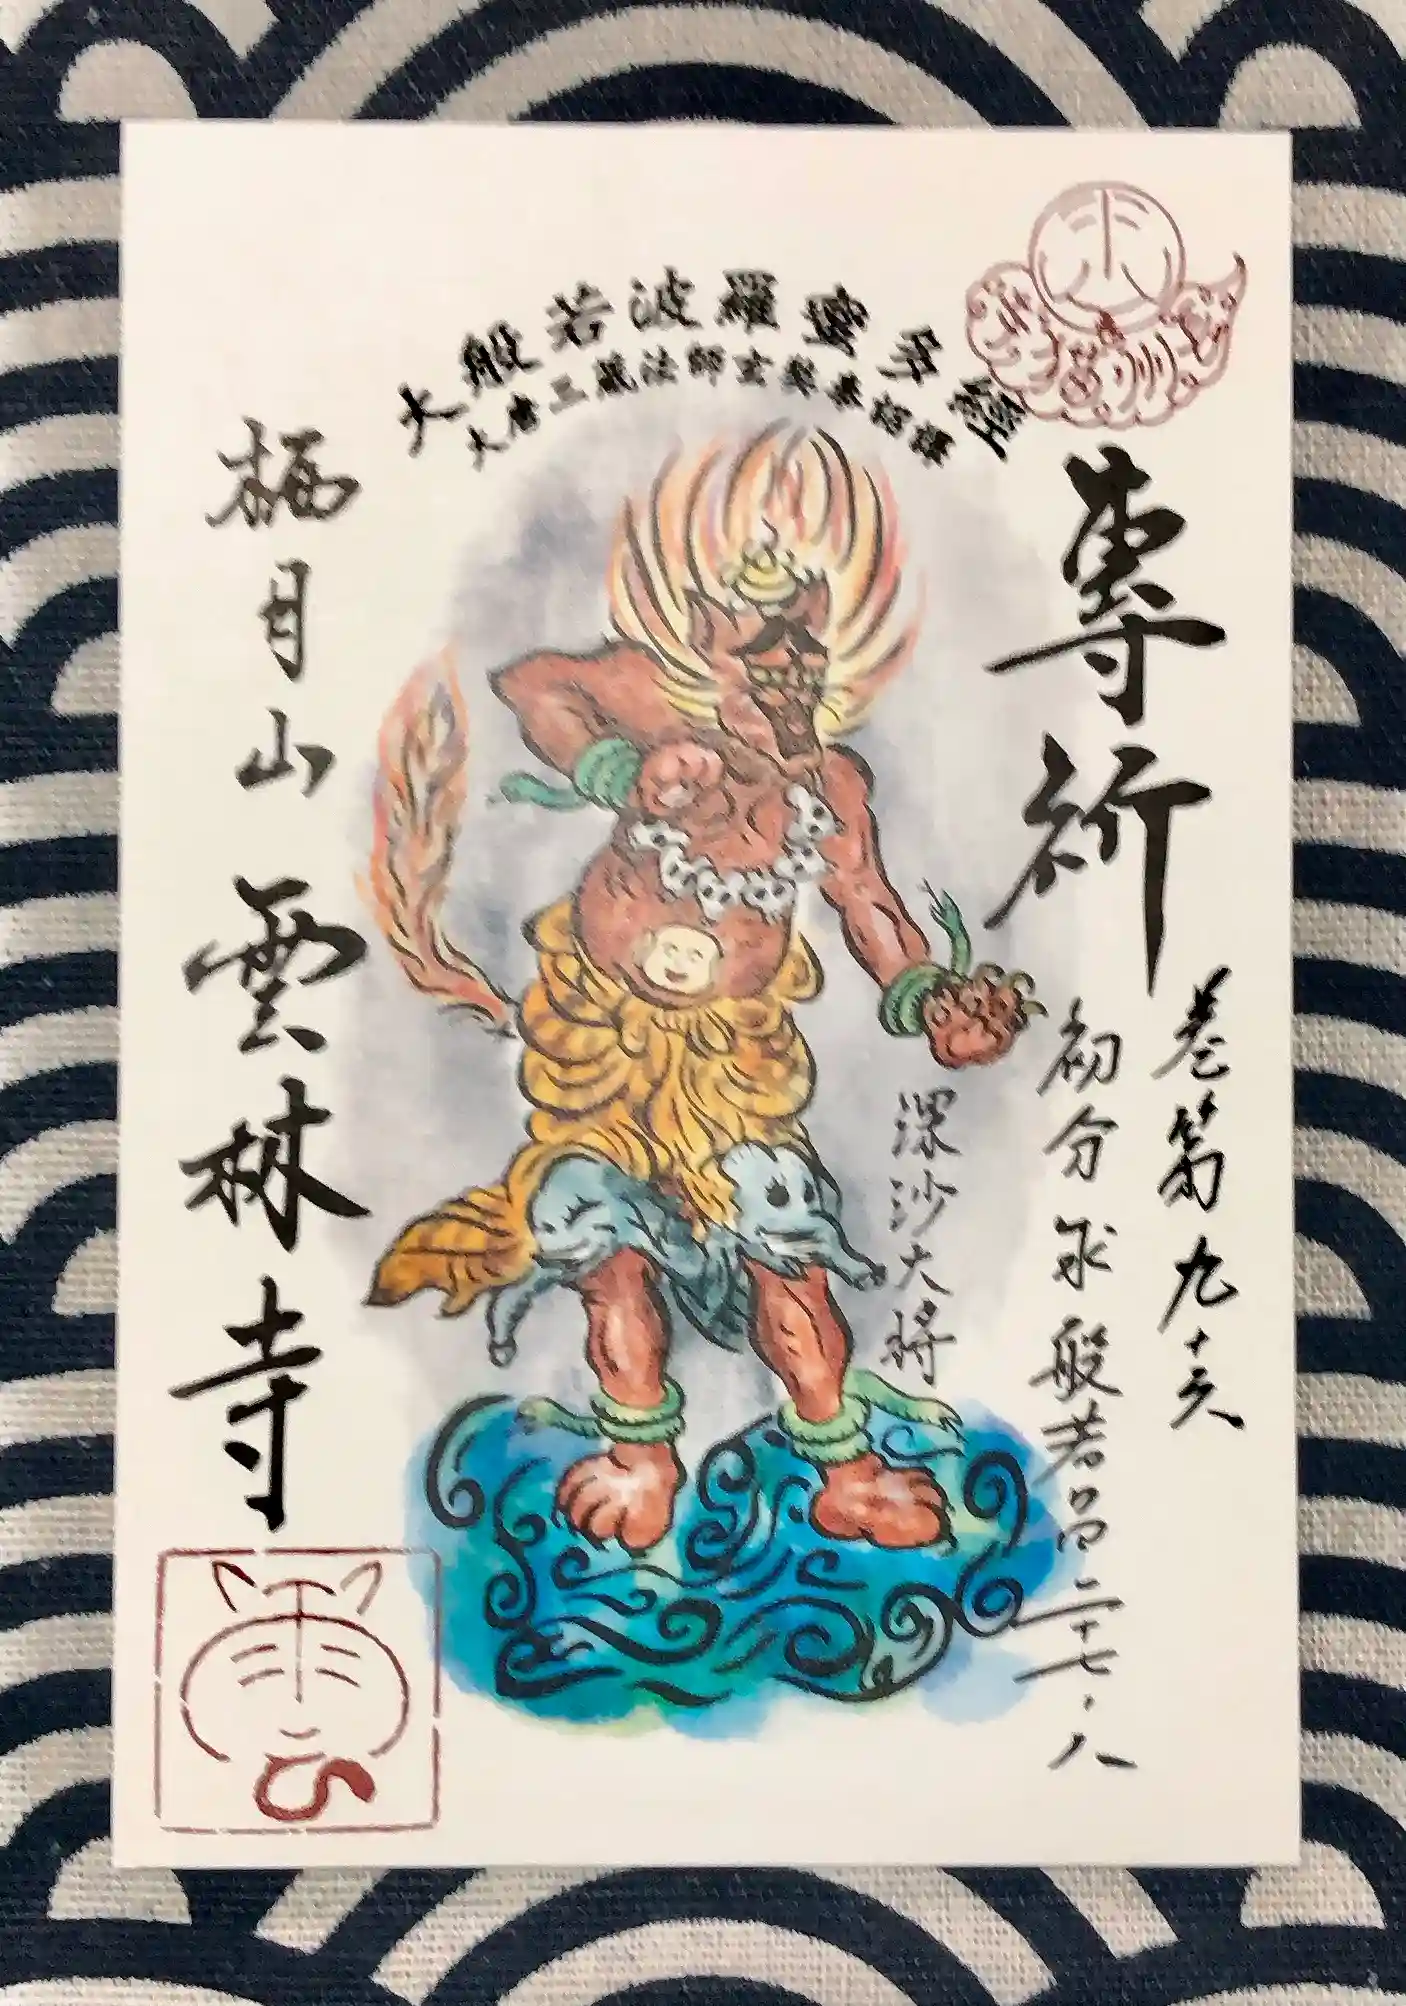 大般若波羅蜜多經
大唐三蔵法師玄奘奉詔譯
専祈
巻第九十六
初分求般若品二十七・八
深沙大将
栖月山
雲林寺